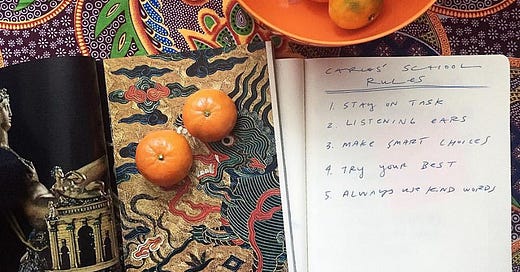 CARLOS' SCHOOL
RULES
1. STAY ON TASK
2. LISTENING EARS
3. MAKE SMART CHOICES
4. TRY YOUR BEST
5. ALWAYS USE KIND WORDS